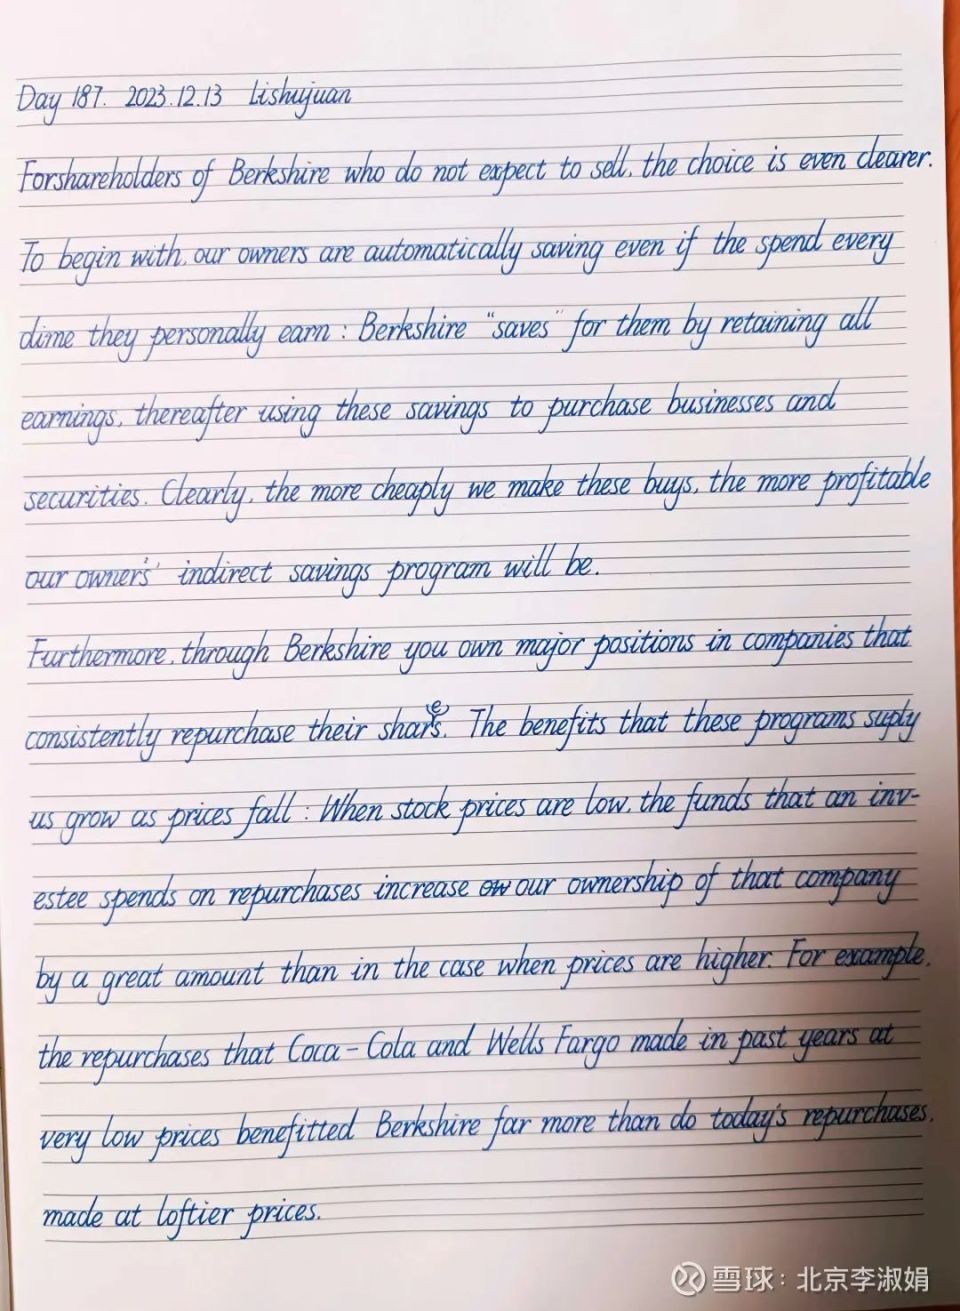 Day 187. 2023.12.13 Lishujuan
Forshareholders of Berkshire who do not expect to sell, the choice is even clearer.
To begin with, our owners are automatically saving even if the spend every
dime they personally earn : Berkshire "saves" for them by retaining all
earnings, thereafter using these savings to purchase businesses and
securities. Clearly, the more cheaply we make these buys, the more profitable
our owner's' indirect savings program will be.
Furthermore, through Berkshire you own major positions in companies that
consistently repurchase their shares. The benefits that these programs suply
us grow as prices fall : When stock prices are low, the funds that an inv-
estee spends on repurchases increase our ownership of that company
by a great amount than in the case when prices are higher. For example,
the repurchases that Coca-Cola and Wells Fargo made in past years at
very low prices benefitted Berkshire far more than do today's repurchases,
made at loftier prices.
雪球：北京李淑娟